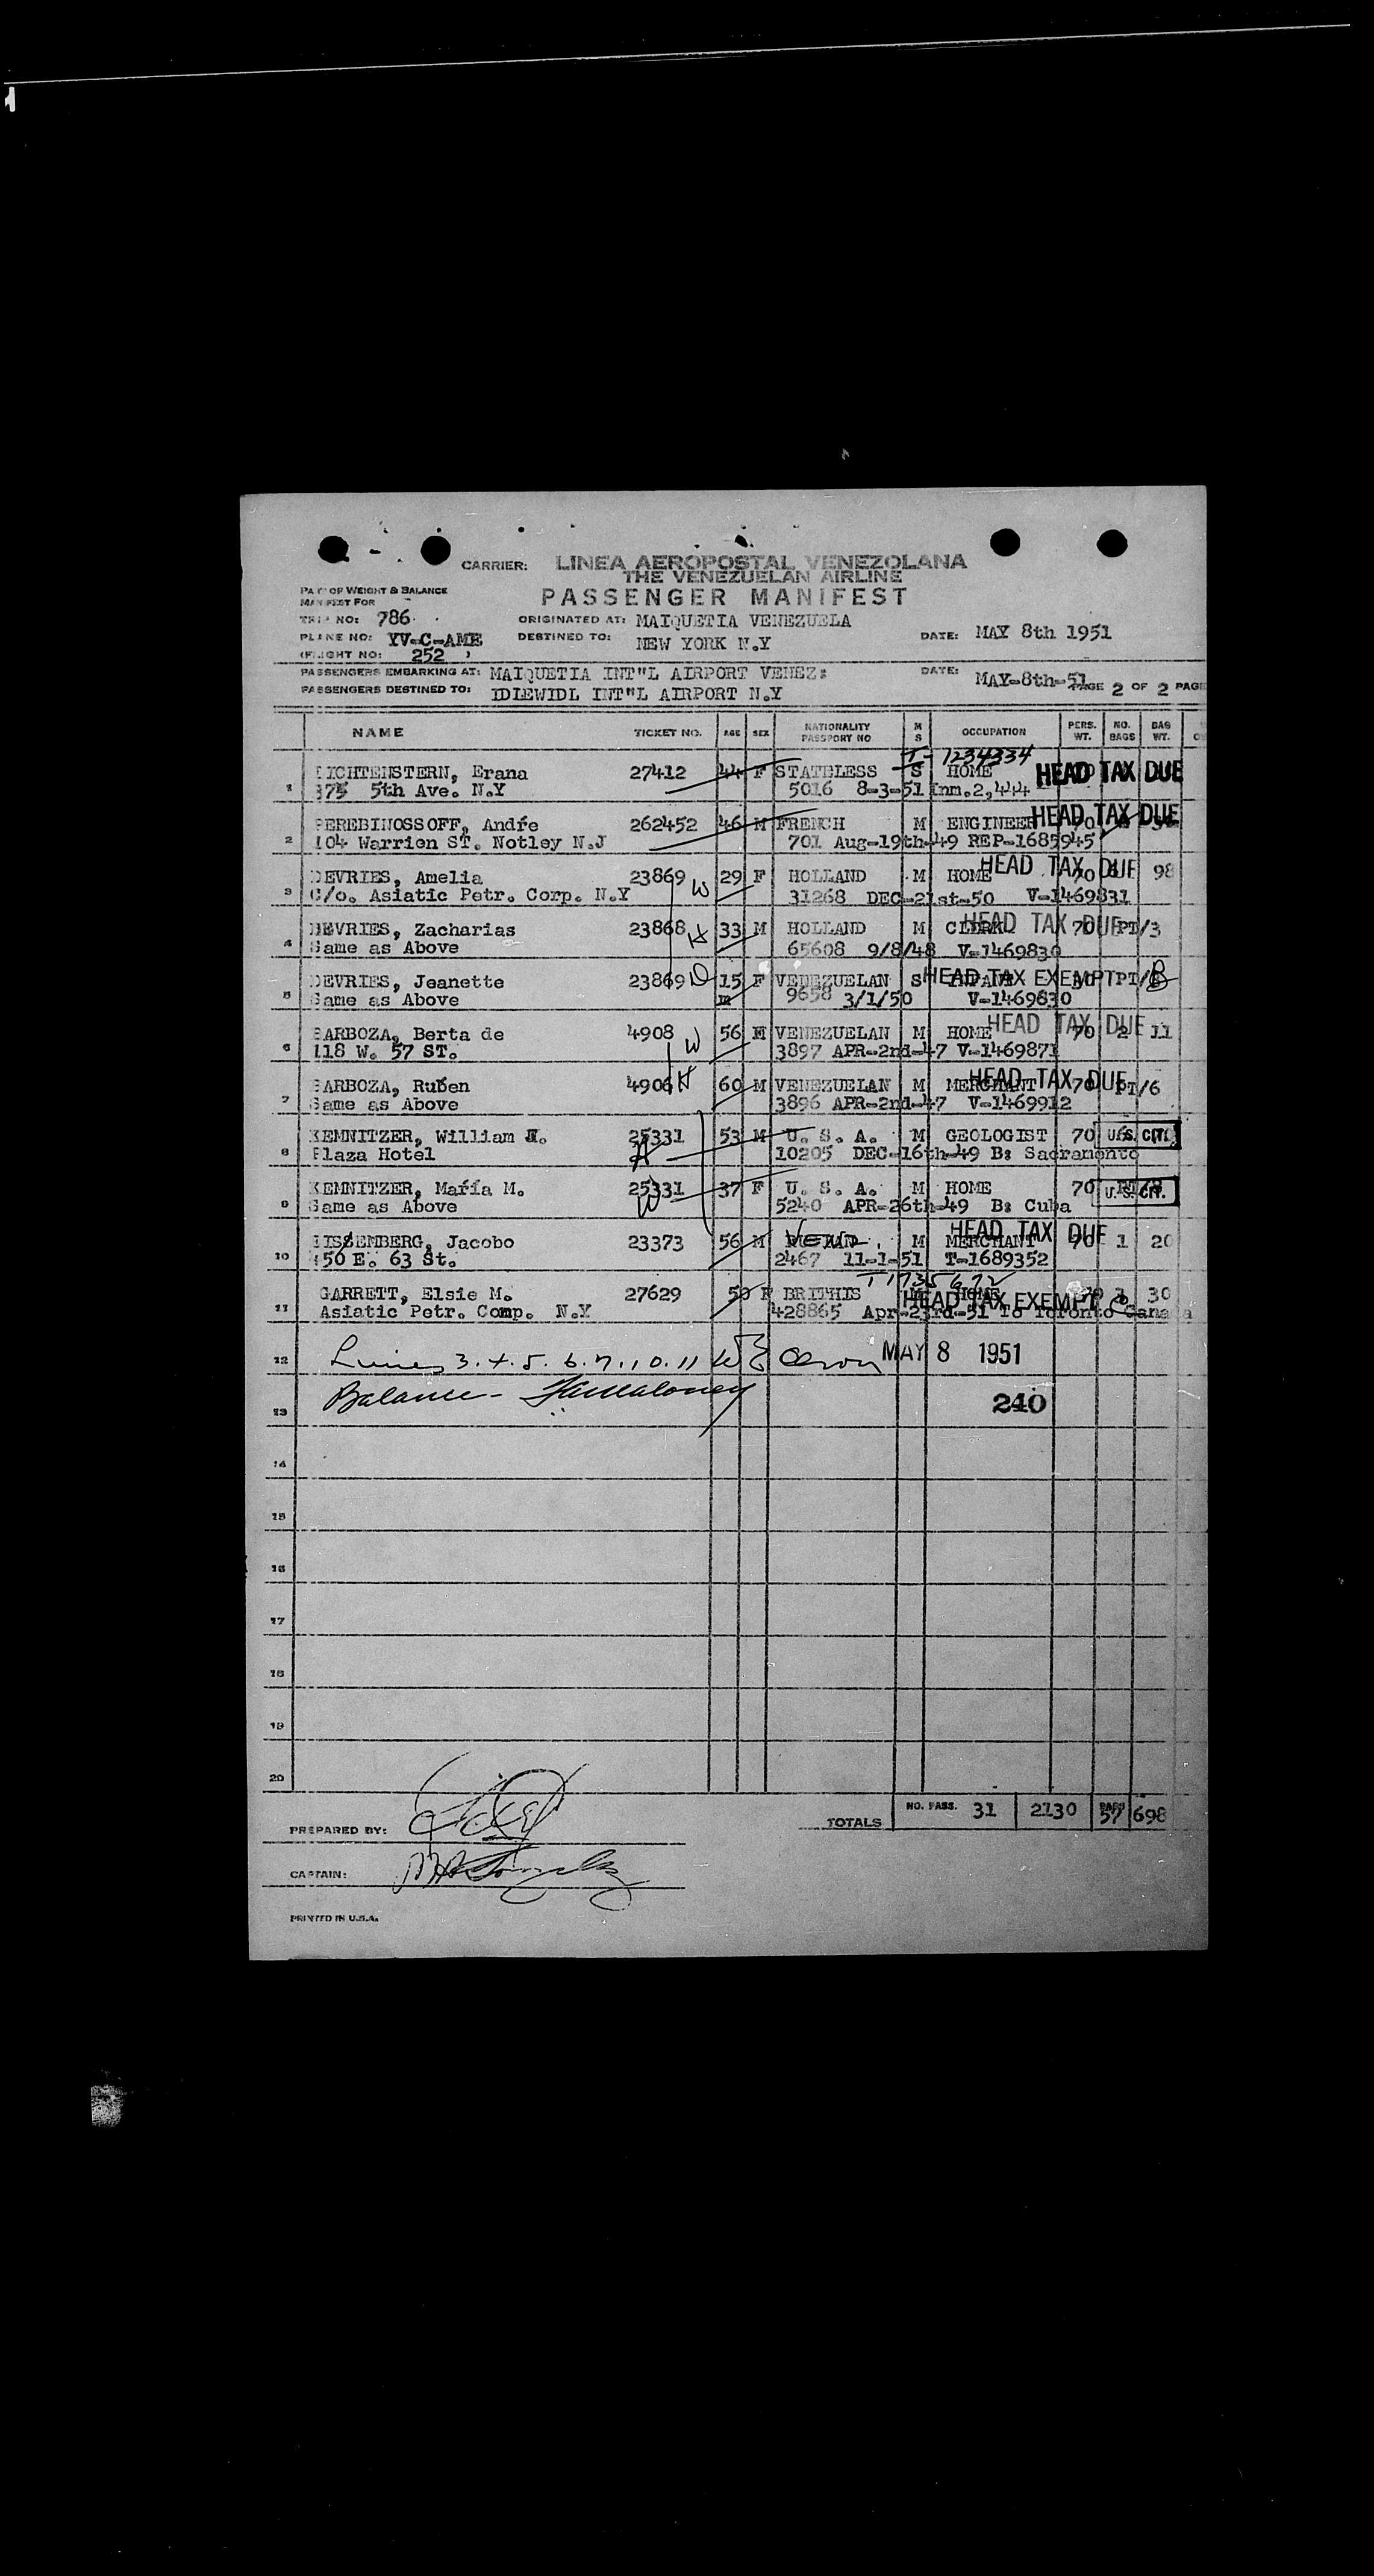 CARRIER: LINEA AEROPOSTAL VENEZOLANA
THE VENEZUELAN AIRLINE
PASSENGER MANIFEST
PART OF WEIGHT & BALANCE
MANIFEST FOR
TRIP NO: 786
ORIGINATED AT: MAIQUETIA VENEZUELA
PLANE NO: YV-C-AME
DESTINED TO: NEW YORK N.Y
DATE: MAY 8th 1951
(FLIGHT NO: 252 )
PASSENGERS EMBARKING AT: MAIQUETIA INT"L AIRPORT VENEZ:
DATE: MAY-8th-51
PASSENGERS DESTINED TO: IDLEWIDL INT"L AIRPORT N.Y
PAGE 2 OF 2 PAGE
NAME TICKET NO. AGE SEX NATIONALITY PASSPORT NO M S OCCUPATION PERS. WT. NO. BAGS BAG WT.
T-1234334
1 LICHTENSTERN, Erana 27412 44 F STATELESS S HOME HEAD TAX DUE
375 5th Ave. N.Y 5016 8-3-51 Inm.2,444
2 PEREBINOSSOFF, Andre 262452 46 M FRENCH M ENGINEER 70 HEAD TAX DUE
104 Warrien ST. Notley N.J 701 Aug-19th-49 REP-1685945
3 DEVRIES, Amelia 23869 W 29 F HOLLAND M HOME 70 HEAD TAX DUE 98
C/o. Asiatic Petr. Corp. N.Y 31268 DEC-21st-50 V-1469831
4 DEVRIES, Zacharias 23868 H 33 M HOLLAND M CLERK 70 HEAD TAX DUE PT/3
Same as Above 65608 9/8/48 V-1469830
5 DEVRIES, Jeanette 23869 D 15 F VENEZUELAN S HEAD TAX EXEMPT PT/
Same as Above m 9658 3/1/50 V-1469830
6 BARBOZA, Berta de 4908 W 56 VENEZUELAN M HOME 70 HEAD TAX DUE 2 11
118 W. 57 ST. 3897 APR-2nd-47 V-1469871
7 BARBOZA, Ruben 4906 H 60 M VENEZUELAN M MERCHANT 70 HEAD TAX DUE PT/6
Same as Above 3896 APR-2nd-47 V-1469912
8 KEMNITZER, William J. 25331 53 M U. S. A. M GEOLOGIST 70 U.S. CIT.
Plaza Hotel H 10205 DEC-16th-49 B: Sacramento
9 KEMNITZER, María M. 25331 37 F U. S. A. M HOME 70 U.S. CIT.
Same as Above W 5240 APR-26th-49 B: Cuba
10 LISSEMBERG, Jacobo 23373 56 M VENZ. M MERCHANT 70 HEAD TAX DUE 1 20
450 E. 63 St. 2467 11-1-51 T-1689352
T1735672
11 GARRETT, Elsie M. 27629 50 F BRITHIS HOME HEAD TAX EXEMPT 30
Asiatic Petr. Comp. N.Y 428865 Apr-23rd-51 To Toronto Canada
12 Lines 3.4.5.6.7.10.11 MAY 8 1951
13 Balance - 240
14
15
16
17
18
19
20
TOTALS NO. PASS. 31 2130 57 698
PREPARED BY:
CAPTAIN:
PRINTED IN U.S.A.